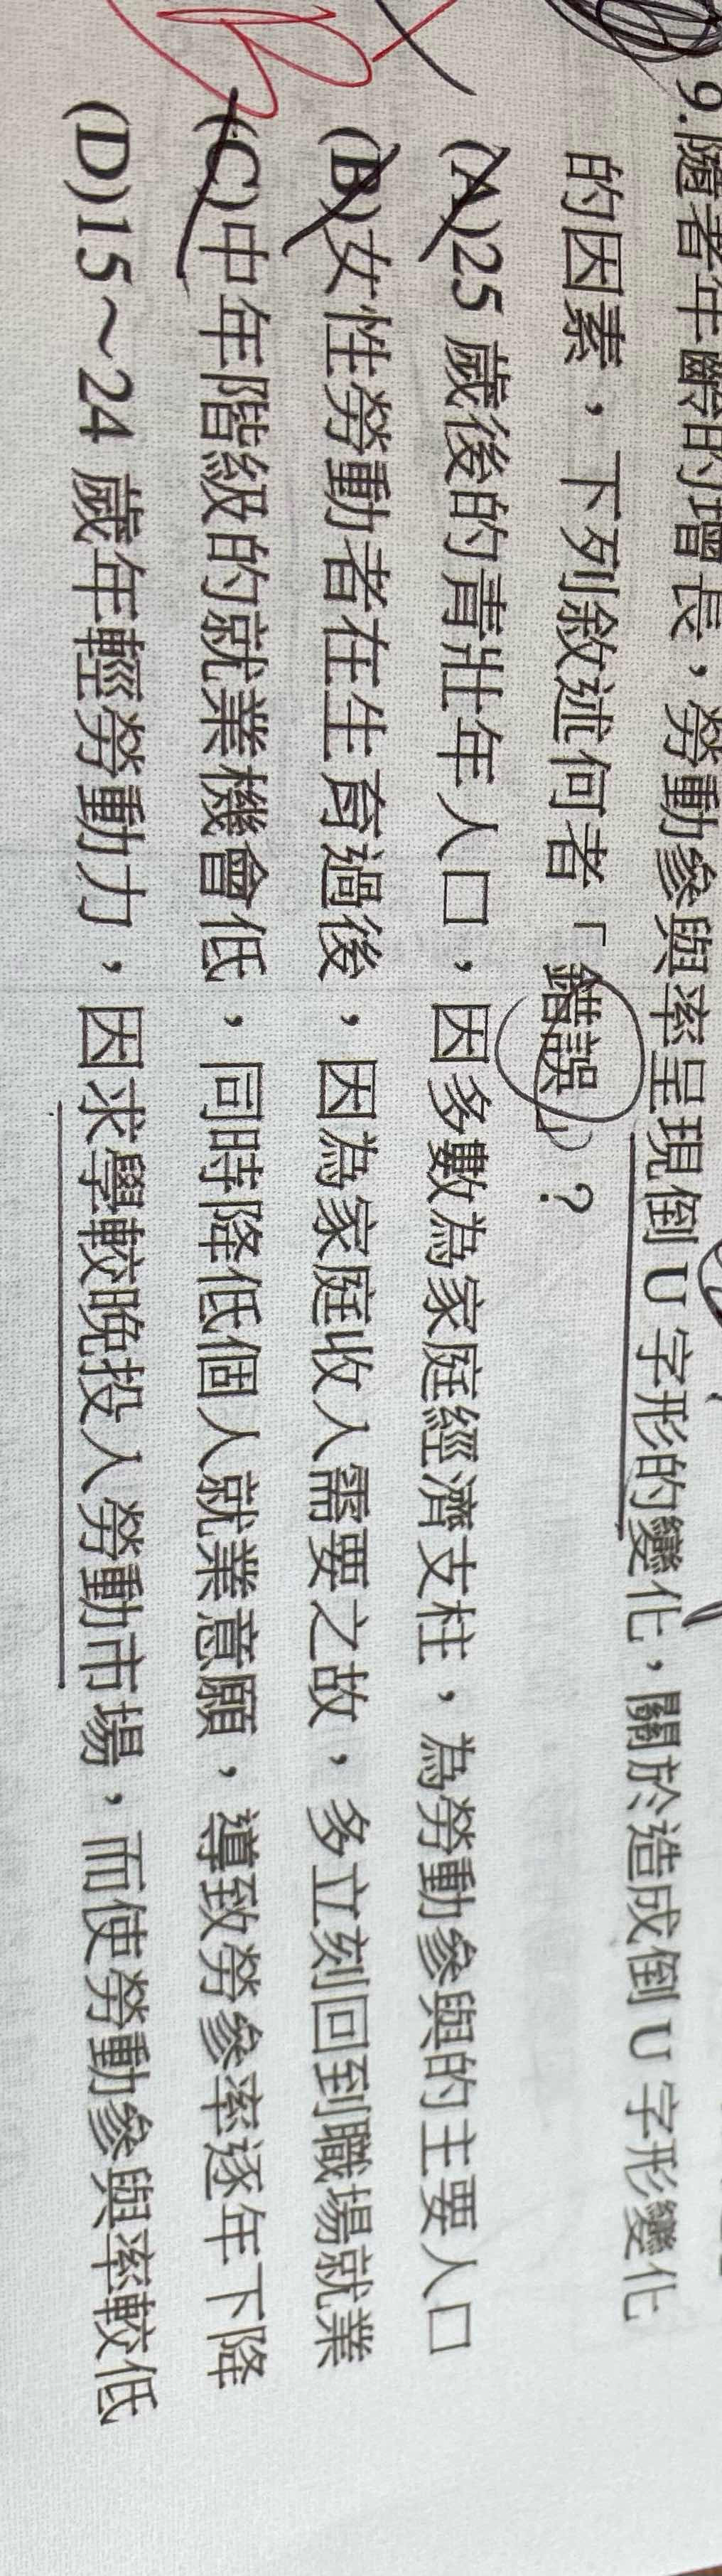 9.隨著年齡的增長，勞動參與率呈現倒 U 字形的變化，關於造成倒 U 字形變化
的因素，下列敘述何者「錯誤」？
(A)25 歲後的青壯年人口，因多數為家庭經濟支柱，為勞動參與的主要人口
(B)女性勞動者在生育過後，因為家庭收入需要之故，多立刻回到職場就業
(C)中年階級的就業機會低，同時降低個人就業意願，導致勞參率逐年下降
(D)15～24 歲年輕勞動力，因求學較晚投入勞動市場，而使勞動參與率較低